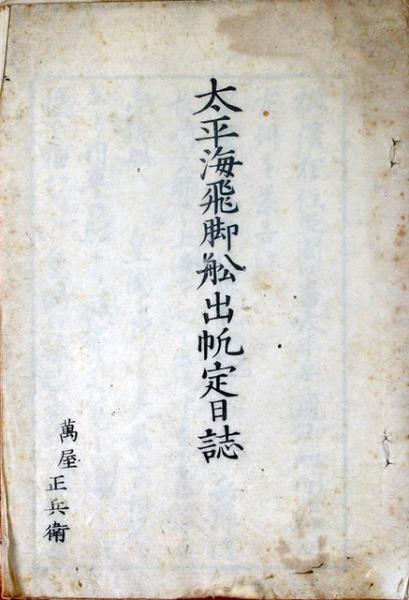 太平海飛脚舩出帆定日誌
萬屋正兵衛